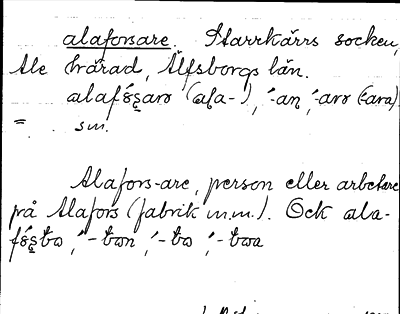 alaforsare. Starrkärrs socken,
Ale härad, Älfsborgs län.
alafǿs̨arə (ala-), ´-an, ´-arə (-ara)
= sm.
Alafors-are, person eller arbetare
på Alafors (fabrik m.m.). Ock ala-